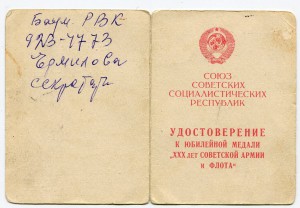 Баум. РВК
923-4773
Ермилова
секретарь
СОЮЗ
СОВЕТСКИХ
СОЦИАЛИСТИЧЕСКИХ
РЕСПУБЛИК
УДОСТОВЕРЕНИЕ
К ЮБИЛЕЙНОЙ МЕДАЛИ
"XXX ЛЕТ СОВЕТСКОЙ АРМИИ
и ФЛОТА"